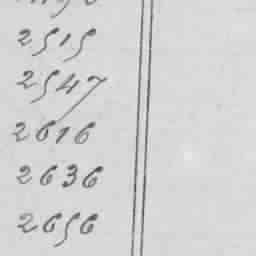 2515
2547
2616
2636
2656